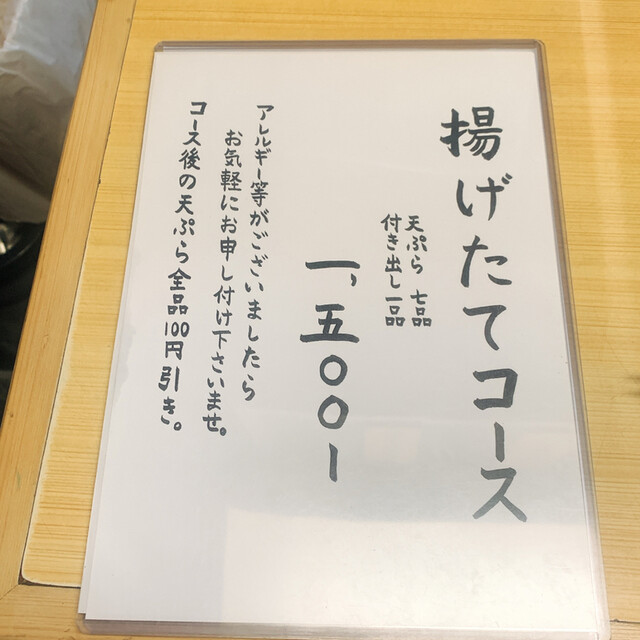 揚げたてコース
天ぷら 七品
付き出し一品
一,五〇〇ー
アレルギー等がございましたら
お気軽にお申し付け下さいませ。
コース後の天ぷら全品100円引き。